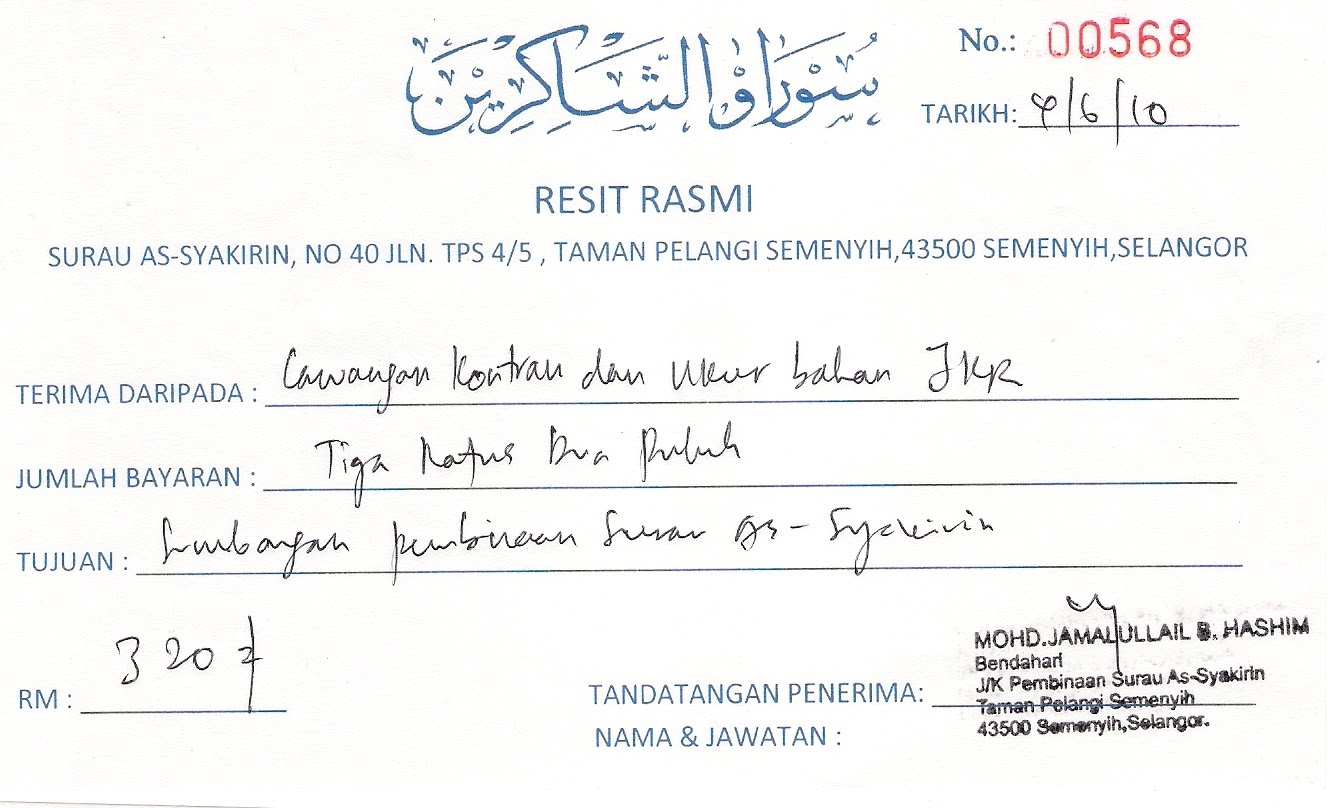 سوراو الشاكرين
No.: 00568
TARIKH: 9/6/10
RESIT RASMI
SURAU AS-SYAKIRIN, NO 40 JLN. TPS 4/5 , TAMAN PELANGI SEMENYIH,43500 SEMENYIH,SELANGOR
TERIMA DARIPADA : Cawangan Kontrak dan Ukur bahan JKR
JUMLAH BAYARAN : Tiga Ratus Dua Puluh
TUJUAN : Sumbangan pembinaan Surau As-Syakirin
RM : 320
TANDATANGAN PENERIMA:
NAMA & JAWATAN :
MOHD.JAMALULLAIL B. HASHIM
Bendahari
J/K Pembinaan Surau As-Syakirin
Taman Pelangi Semenyih
43500 Semenyih,Selangor.